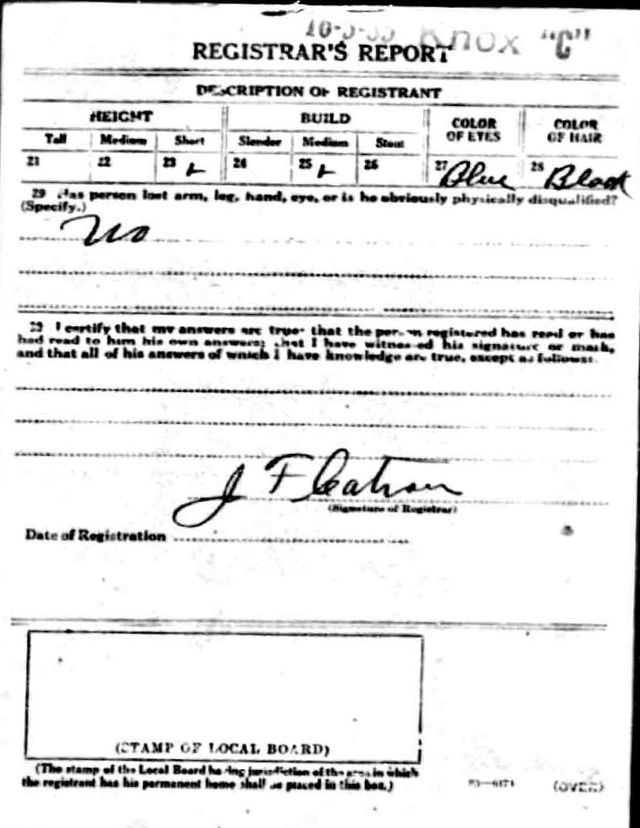 16-3-33 Knox "C"
REGISTRAR'S REPORT
DESCRIPTION OF REGISTRANT
HEIGHT BUILD COLOR OF EYES COLOR OF HAIR
Tall Medium Short Slender Medium Stout
21 22 23 24 25 26 27 Blue 28 Black
29 Has person lost arm, leg, hand, eye, or is he obviously physically disqualified?
(Specify.)
No
I certify that my answers are true; that the person registered has read or has
had read to him his own answers; that I have witnessed his signature or mark,
and that all of his answers of which I have knowledge are true, except as follows:
J F Catron
(Signature of Registrar)
Date of Registration
(STAMP OF LOCAL BOARD)
(The stamp of the Local Board having jurisdiction of the area in which
the registrant has his permanent home shall be placed in this box.)
(OVER)